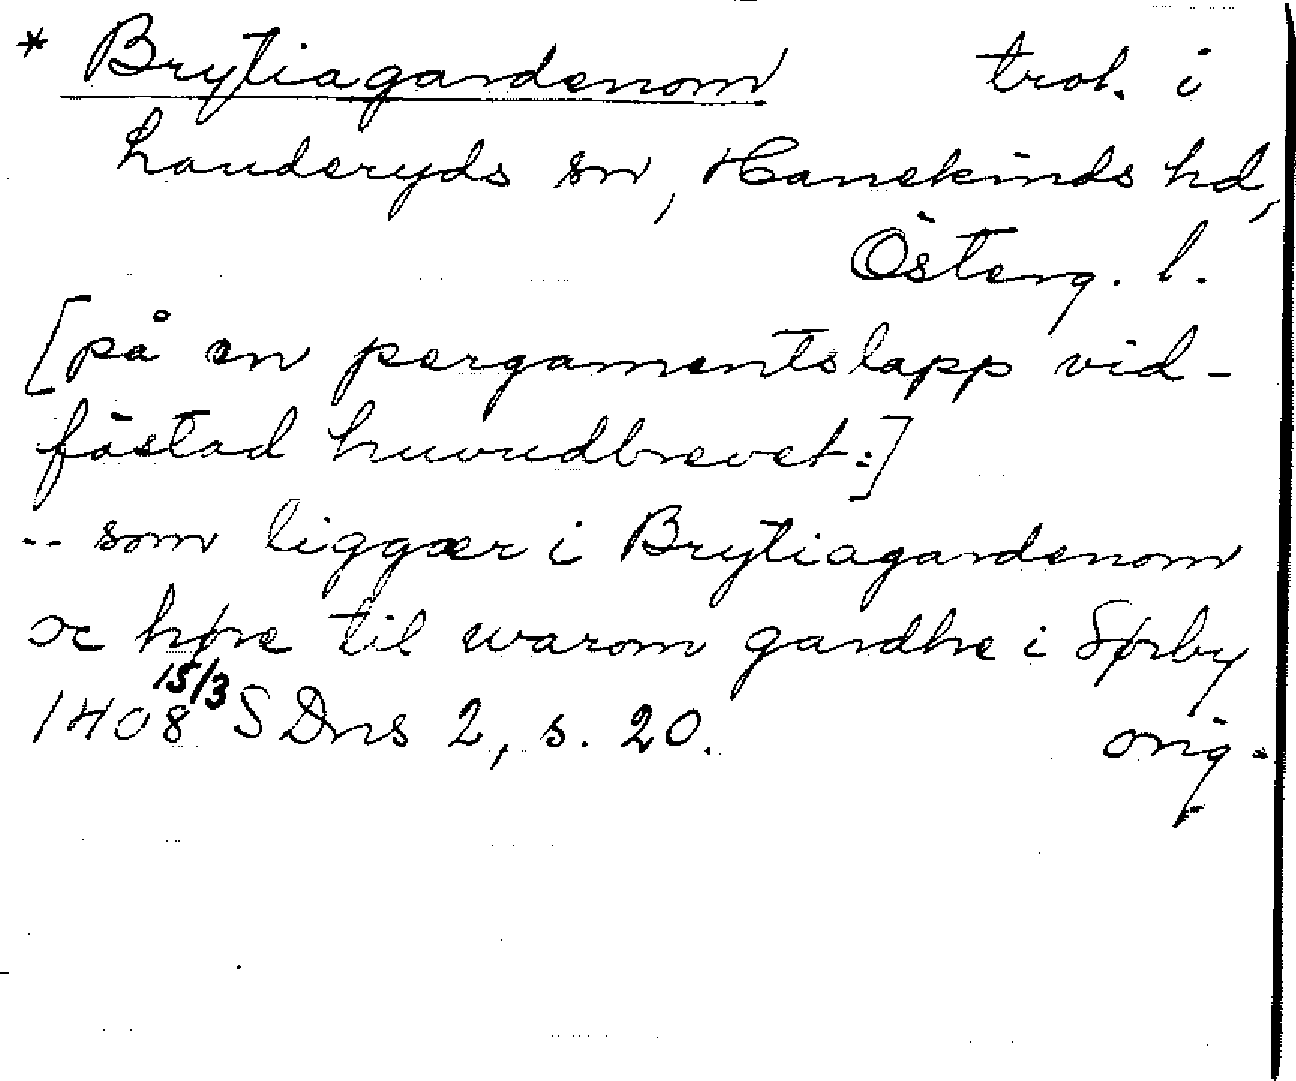 * Brytiagardenom trol. i
Landeryds sn, Hanekinds hd,
Österg. l.
[på en pergamentslapp vid-
fästad huvudbrevet:]
-- som liggær i Brytiagardenom
oc høre til warom gardhe i Sørby
1408 15/3 SDns 2, s. 20. orig.